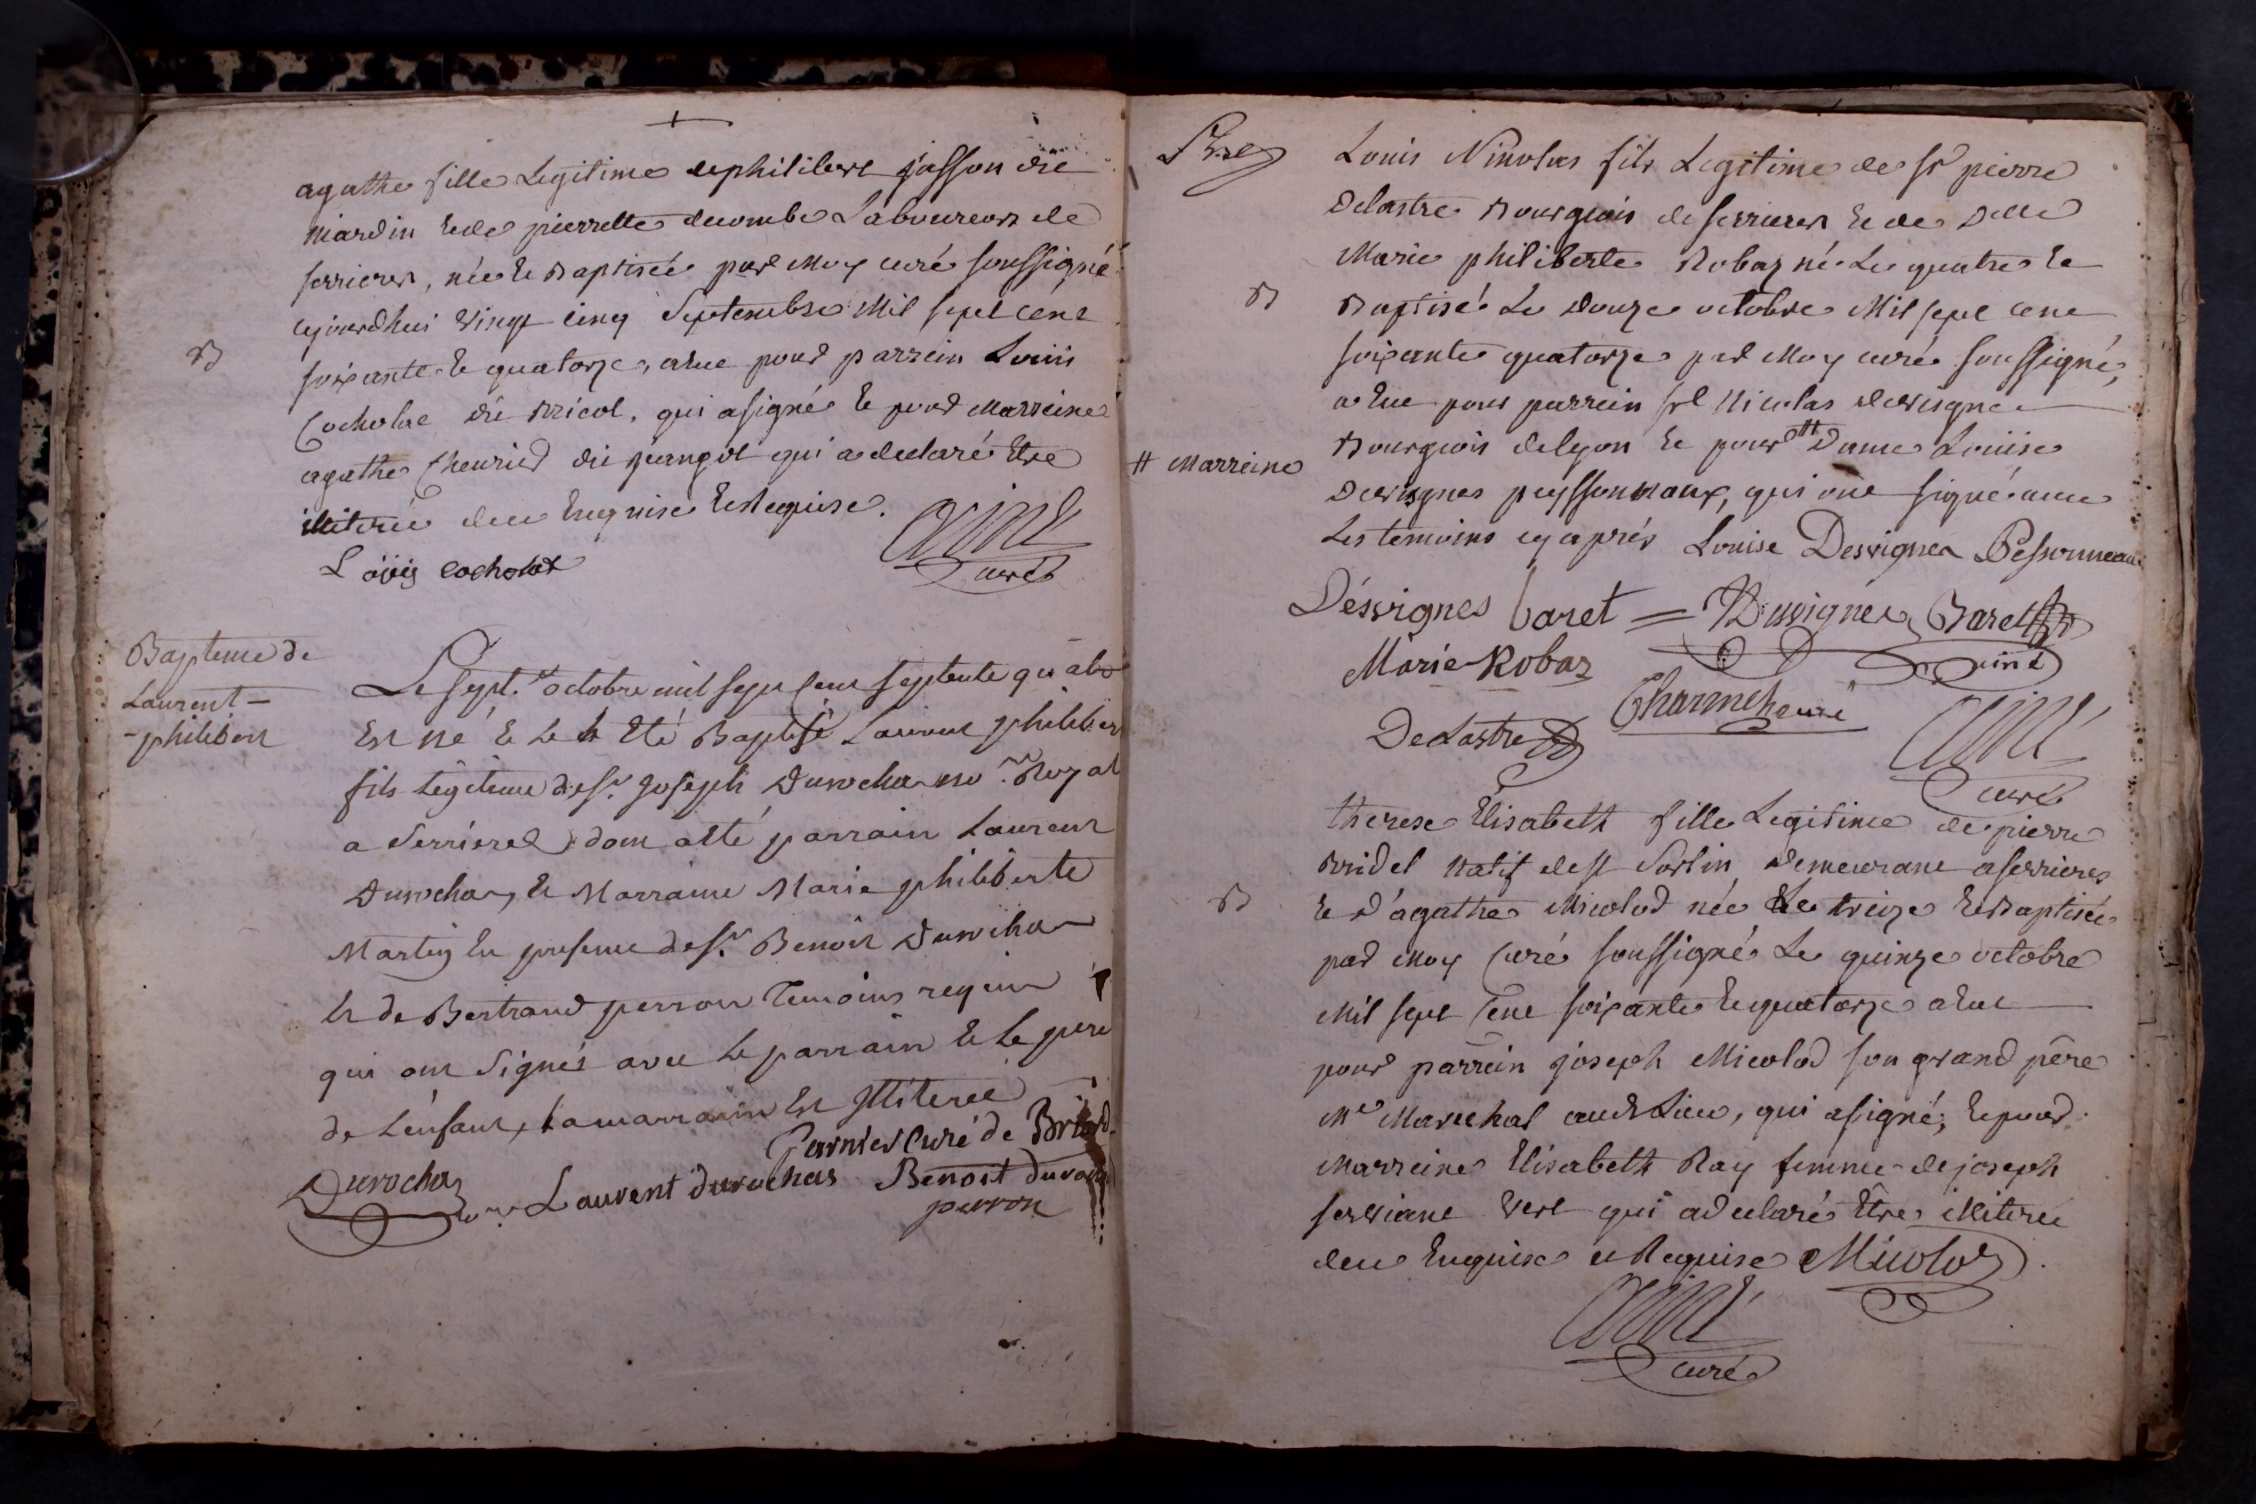 agathe fille Legitime de philibert josson dit
mardin et de pierrette decombe Laboureurs de
serrieres, née et Baptisée par Moy curé soussigné
cejourdhui vingt cinq Septembre Mil sept cent
B
soixante et quatorze, a eue pour parrein Louis
Cocholat dit Bricol, qui asigné et pour Marreine
agathe Cheurier dit jeangot qui a declaré être
illiterée deue Enquise Et Requise.
Loüis cocholat
Curé
Bapteme de
Laurent-
-philibert
Le Sept. octobre mil sept cent septente quatre
Est né & Le 8 Eté Baptisé Laurent philibert
fils Légitime de Sr. Joseph Durochar no.re Royal
a Serrieres dont a été parrain Laurent
Durochar, & Marraine Marie philiberte
Martin En presence de Sr. Benoit Durochar
Et de Bertrand perron Temoins requis
qui ont Signés avec Le parrain & Le pere
de Lenfant, La marraine Est Illiterée
Garnier Curé de
Durochar Laurent durochas Benoit duroch
perron
Louis Nicolas fils Legitime de Sr pierre
Delastre Bourgeois de serrieres Et de Delle
Marie philiberte Robaz né Le quatre Et
B
Baptisé Le Douze octobre Mil sept cent
soixante quatorze par Moy curé soussigné,
a Eue pour parrein Sr Nicolas desvigne
Bourgeois de lyon Et pour # Dame Louise
# Marreine
Desvignes peyssonneaux, qui ont signé avec
Les temoins cy après Louise Desvignes Pessonneaux
Désvignes baret = Desvignes Baret
Marie Robaz
Charme
DeLastre
Curé
therese Elisabeth fille Legitime de pierre
Bridel natif de St Sorlin Demeurant a serrieres
B
Et d'agathe Micolod née Le treize Et Baptisée
par Moy Curé soussigné Le quinze octobre
Mil sept Cent soixante Et quatorze a Eue
pour parrein joseph Micolod son grand père
Me Marechal audt Lieu, qui asigné; Et pour
Marreine Elisabeth Ray femme de joseph
serviant vert qui adeclaré Être illiterée
deue Enquise et Requise Micolod
Curé